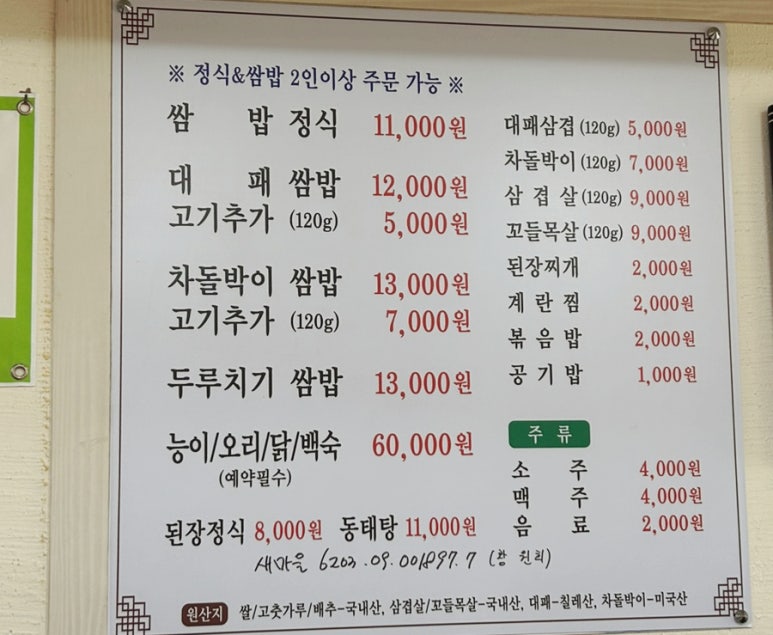 ※ 정식&쌈밥 2인이상 주문 가능 ※
쌈 밥 정식 11,000원
대 패 쌈밥 12,000원
고기추가 (120g) 5,000원
차돌박이 쌈밥 13,000원
고기추가 (120g) 7,000원
두루치기 쌈밥 13,000원
능이/오리/닭/백숙 60,000원
(예약필수)
된장정식 8,000원 동태탕 11,000원
대패삼겹 (120g) 5,000원
차돌박이 (120g) 7,000원
삼 겹 살 (120g) 9,000원
꼬들목살 (120g) 9,000원
된장찌개 2,000원
계 란 찜 2,000원
볶 음 밥 2,000원
공 기 밥 1,000원
주 류
소 주 4,000원
맥 주 4,000원
음 료 2,000원
새마을 6203.09.001897.7
원산지 쌀/고춧가루/배추-국내산, 삼겹살/꼬들목살-국내산, 대패-칠레산, 차돌박이-미국산